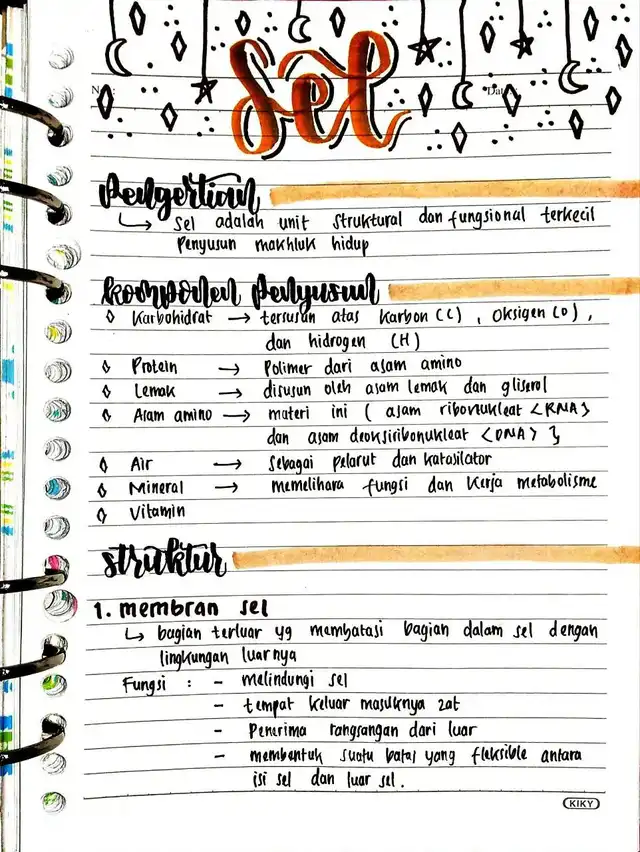 No :
Sel
Date :
Pengertian
↳ sel adalah unit struktural dan fungsional terkecil
Penyusun makhluk hidup
komponen penyusun
◊ Karbohidrat → tersusun atas Karbon (C) , Oksigen (O) ,
dan hidrogen (H)
◊ Protein → Polimer dari asam amino
◊ Lemak → disusun oleh asam lemak dan gliserol
◊ Asam amino → materi ini ( asam ribonukleat <RNA>
dan asam deoksiribonukleat <DNA> }
◊ Air → sebagai pelarut dan katasilator
◊ Mineral → memelihara fungsi dan Kerja metabolisme
◊ Vitamin
struktur
1. membran sel
↳ bagian terluar yg membatasi bagian dalam sel dengan
lingkungan luarnya
Fungsi : - melindungi sel
- tempat keluar masuknya zat
- Penerima rangsangan dari luar
- membentuk suatu batas yang fleksible antara
isi sel dan luar sel.
KIKY